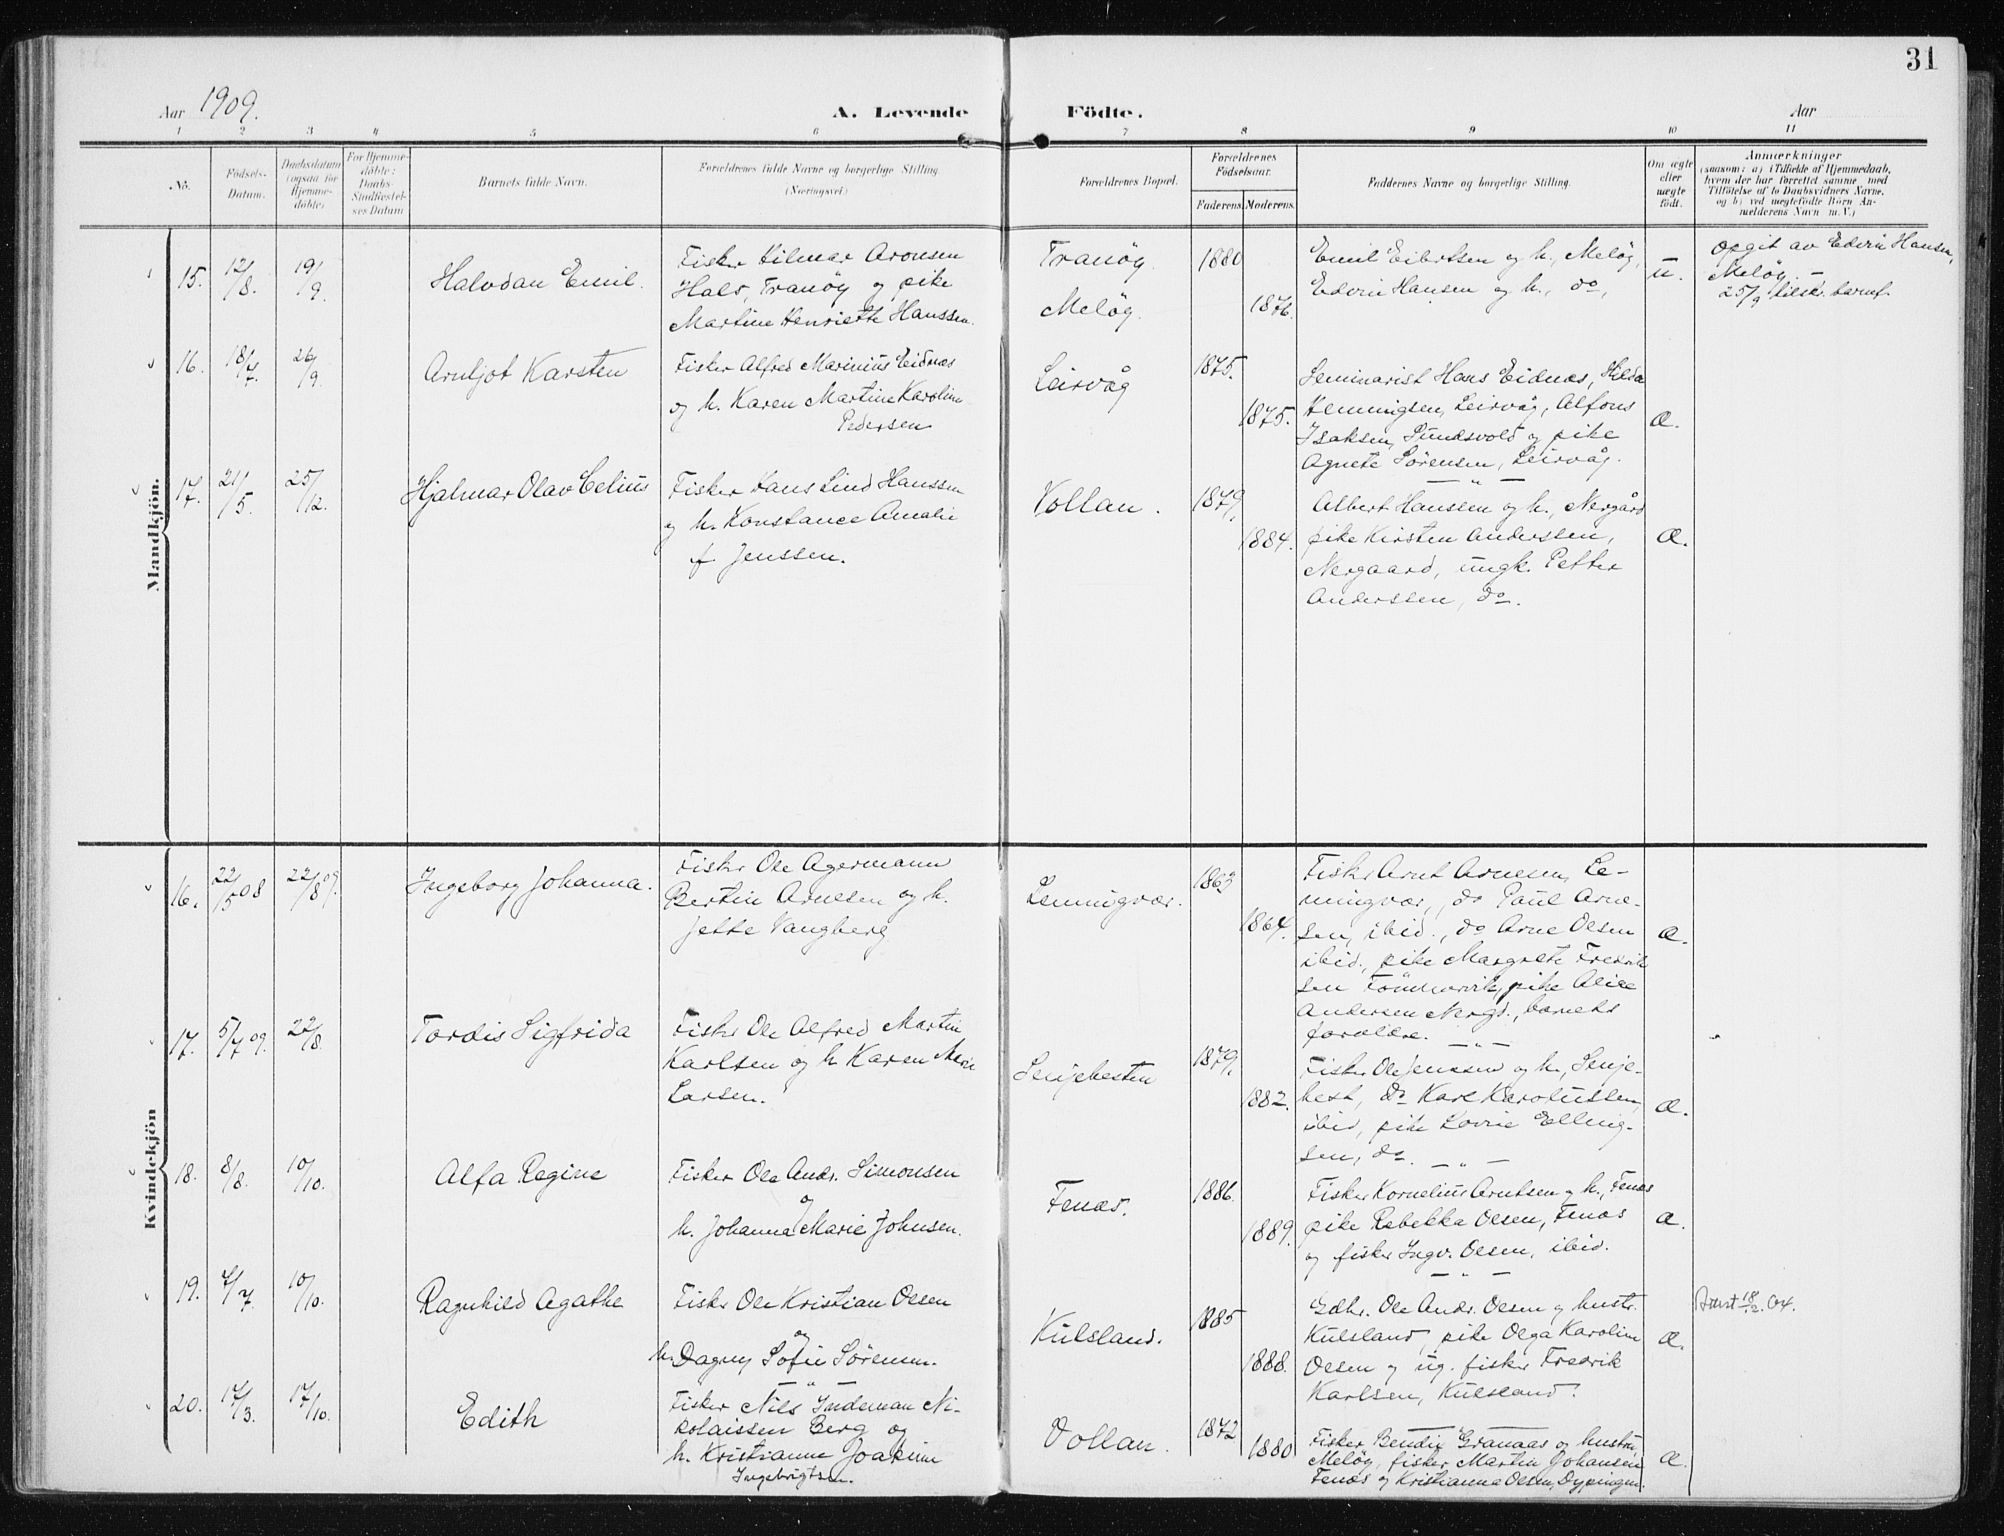 31
Aar 1909.
A. Levende Födte.
Aar
1 2 3 4 5 6 7 8 9 10 11
No.
Födsels-Datum.
Daabsdatum (ogsaa for Hjemme-döbte)
For Hjemme-döbte: Daabs-Stadfæstel-ses Datum
Barnets fulde Navn.
Forældrenes fulde Navne og borgerlige Stilling (Næringsvei)
Forældrenes Bopæl.
Forældrenes Födselsaar.
Faderens. Moderens.
Faddernes Navne og borgerlige Stilling.
Om ægte eller uægte födt.
Anmærkninger
(saasom: a) i Tilfælde af Hjemmedaab,
hvem der har forrettet samme med
Tilföielse af to Daabsvidners Navne,
og b) ved uægtefödte Börn An-
melderens Navn m. V.)
Mandkjön.
15. 12/8. 19/9. Halvdan Emil.
Fisker Hilmar Aronsen
Hals, Tranöy og pike
Martine Henriette Hanssen.
Tranöy.
Melöy.
1880
1876.
Emil Eibrtsen og h., Melöy,
Edvin Hansen og h., do,
u.
Opgit av Edvin Hansen,
Melöy. —
25/9 tilskr. barnef.
16. 18/7. 26/9. Arnljot Karsten
Fisker Alfred Marinius Eidnæs
og h. Karen Martine Karoline
Pedersen
Leirvåg
1875.
1875.
Seminarist Hans Eidnæs, Hilda
Hemmingsen, Leirvåg, Alfons
Isaksen, Sundsvold og pike
Agnete Sørensen, Leirvåg.
— " —
æ.
17. 21/5. 25/12. Hjalmar Olav Celius
Fisker Hans Lind Hanssen
og h. Konstance Amalie
f. Jenssen.
Vollan.
1879,
1884.
Albert Hanssen og h., Nergård
pike Kirsten Anderssen,
Nergaard, ungk. Petter
Anderssen, do.
æ.
Kvindekjön
16. 22/5 08 22/8 09. Ingeborg Johanna.
Fisker Ole Agermann
Bertin Arnesen og h.
Jette Vangberg
Lemmingvær.
1863
1864.
Fisker Arnt Arnesen, Le-
mingvær, do Paul Arne-
sen, ibid., do Arne Olsen
ibid., pike Margrete Fredrik
sen Tömmervik, pike Alice
Andersen Nergd., barnets
forældre. — " —
æ.
17. 5/7 09. 22/8. Tordis Sigfrida
Fisker Ole Alfred Martin
Karlsen og h. Karen Marie
Larsen.
Senjehesten
1879,
1882.
Fisker Ole Jenssen og h., Senje-
hest, do Karl Karolussen,
ibid, pike Lovise Elling-
sen, do. — " —
æ.
18. 8/8. 10/10. Alfa Regine
Fisker Ole Andr. Simonsen
og
h. Johanna Marie Johnsen.
Fenæs.
1886.
1889.
Fisker Kornelius Arntsen og h., Fenæs
pike Rebekka Olsen, Fenæs
og fisker Ingv. Olsen, ibid.
— " —
æ.
19. 7/7. 10/10. Ragnhild Agathe
Fisker Ole Kristian Olsen
og
h. Dagny Sofie Sörensen.
— " —
Kulsland.
1885
1888.
Gdbr. Ole Andr. Olsen og hustr.
Kulsland, pike Olga Karoline
Olsen og ug. fisker Fredrik
Karlsen, Kulsland.
æ.
18/2. 04.
20. 17/3. 17/10. Edith
Fisker Nils Indeman Ni-
kolaissen Berg og
h. Kristianne Joakime
Ingebrigtsen.
Vollan.
1872
1880
Fisker Bendix Granaas og hustru,
Melöy, fisker Martin Johansen
Fenæs og Kristianna Olsen, Dypingen.
æ.